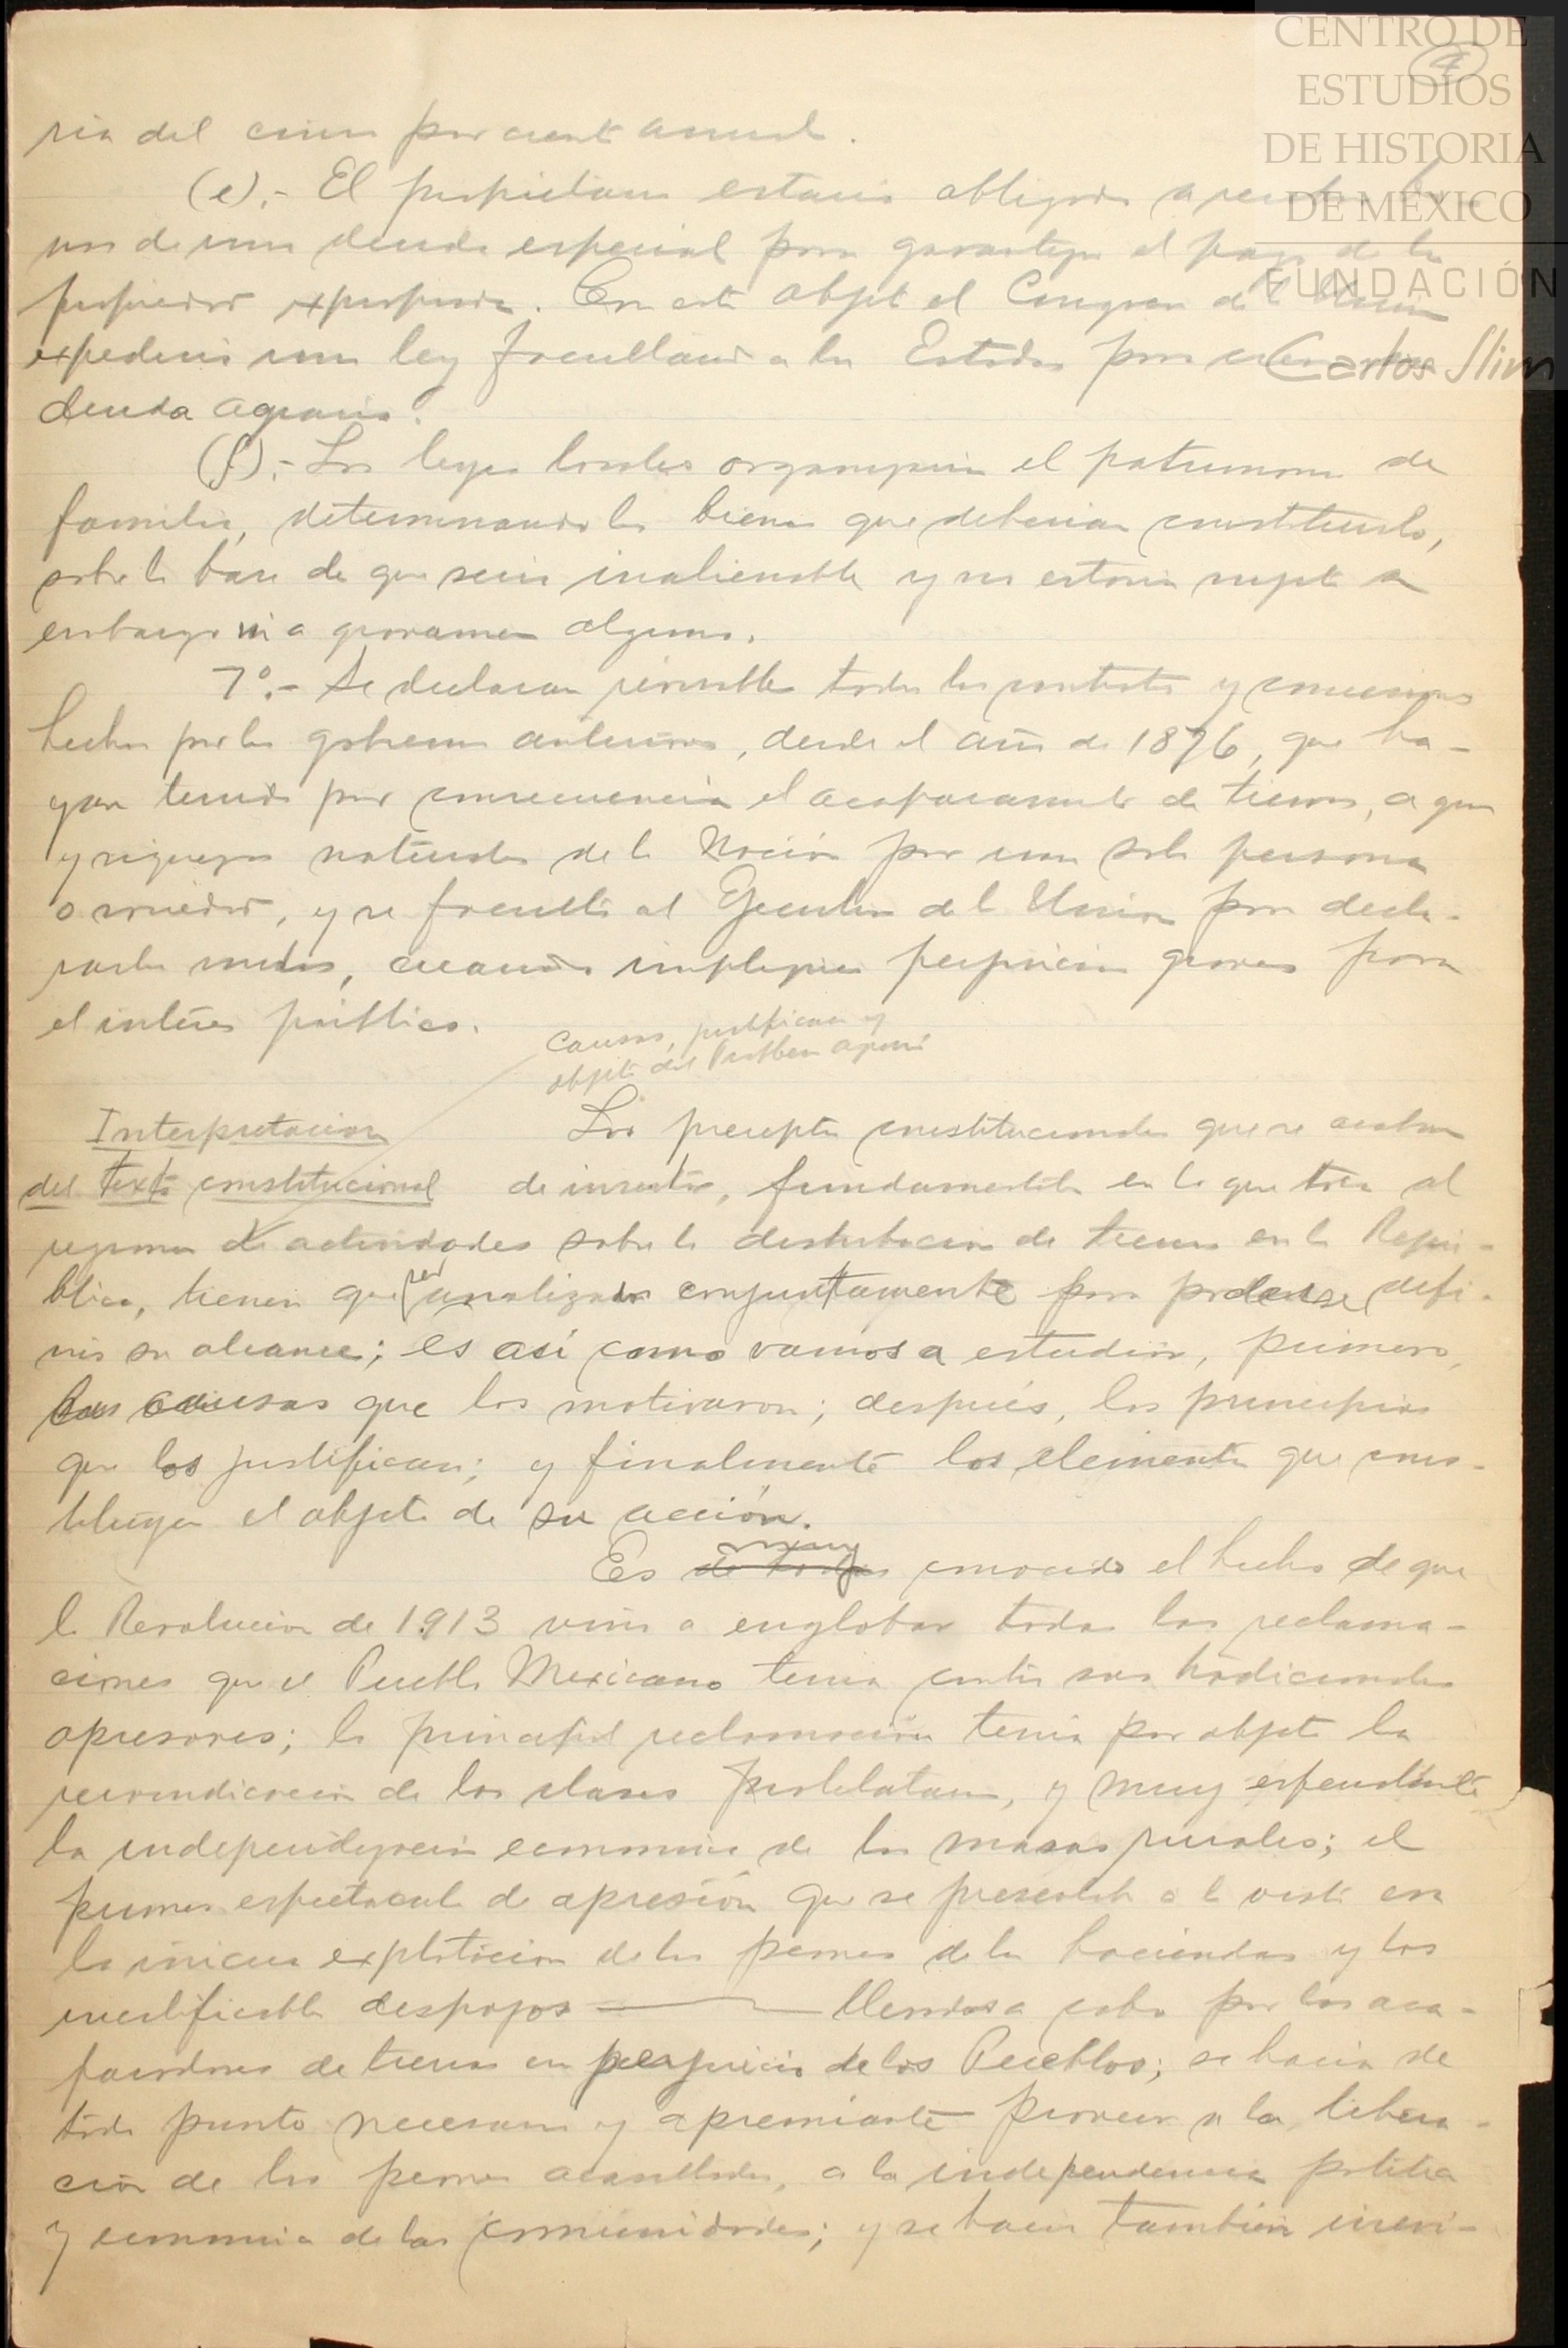 CENTRO DE
ESTUDIOS
DE HISTORIA
DE MÉXICO
FUNDACIÓN
Carlos Slim
4
ria del cinco por ciento anual.
(e).- El propietario estará obligado a recibir
nos de una deuda especial para garantizar el pago de la
propiedad expropiada. Con este objeto el Congreso de la Unión
expedirá una ley facultando a los Estados para crear su
deuda agraria.
(f).- Las leyes locales organizarán el patrimonio de
familia, determinando los bienes que deberían constituirlo,
sobre la base de que sería inalienable y no estaría sujeto a
embargo ni a gravamen alguno.
7º.- Se declaran revisables todos los contratos y concesiones
hechos por los gobiernos anteriores, desde el año de 1876, que ha-
yan tenido por consecuencia el acaparamiento de tierras, aguas
y riquezas naturales de la Nación por una sola persona
o sociedad, y se faculta al Ejecutivo de la Unión para decla-
rarlos nulos, cuando impliquen perjuicios graves para
el interés público.
Causas, justificación y
objeto del Problema agrario
Interpretación
del texto constitucional
Los preceptos constitucionales que se acaban
de insertar, fundamentales en lo que toca al
regimen de actividades sobre la distribución de tierras en la Repú-
blica, tienen que ser analizados conjuntamente para poderse defi-
nir su alcance; es así como vamos a estudiar, primero,
las causas que los motivaron; después, los principios
que los justifican; y finalmente los elementos que cons-
tituyen el objeto de su acción.
Es muy conocido el hecho de que
la Revolución de 1913 vino a englobar todas las reclama-
ciones que el Pueblo Mexicano tenía contra sus tradicionales
opresores; la principal reclamación tenía por objeto la
reivindicación de las clases proletarias, y muy especialmente
la independización económica de las masas rurales; el
primer espectáculo de opresión que se presentaba a la vista era
la inicua explotación de los peones de las haciendas y los
injustificables despojos llevados a cabo por los aca-
paradores de tierras en perjuicio de los Pueblos; se hacía de
todo punto necesario y apremiante proveer a la libera-
ción de los peones acasillados, a la independencia política
y económica de las comunidades; y se hacía también inevi-